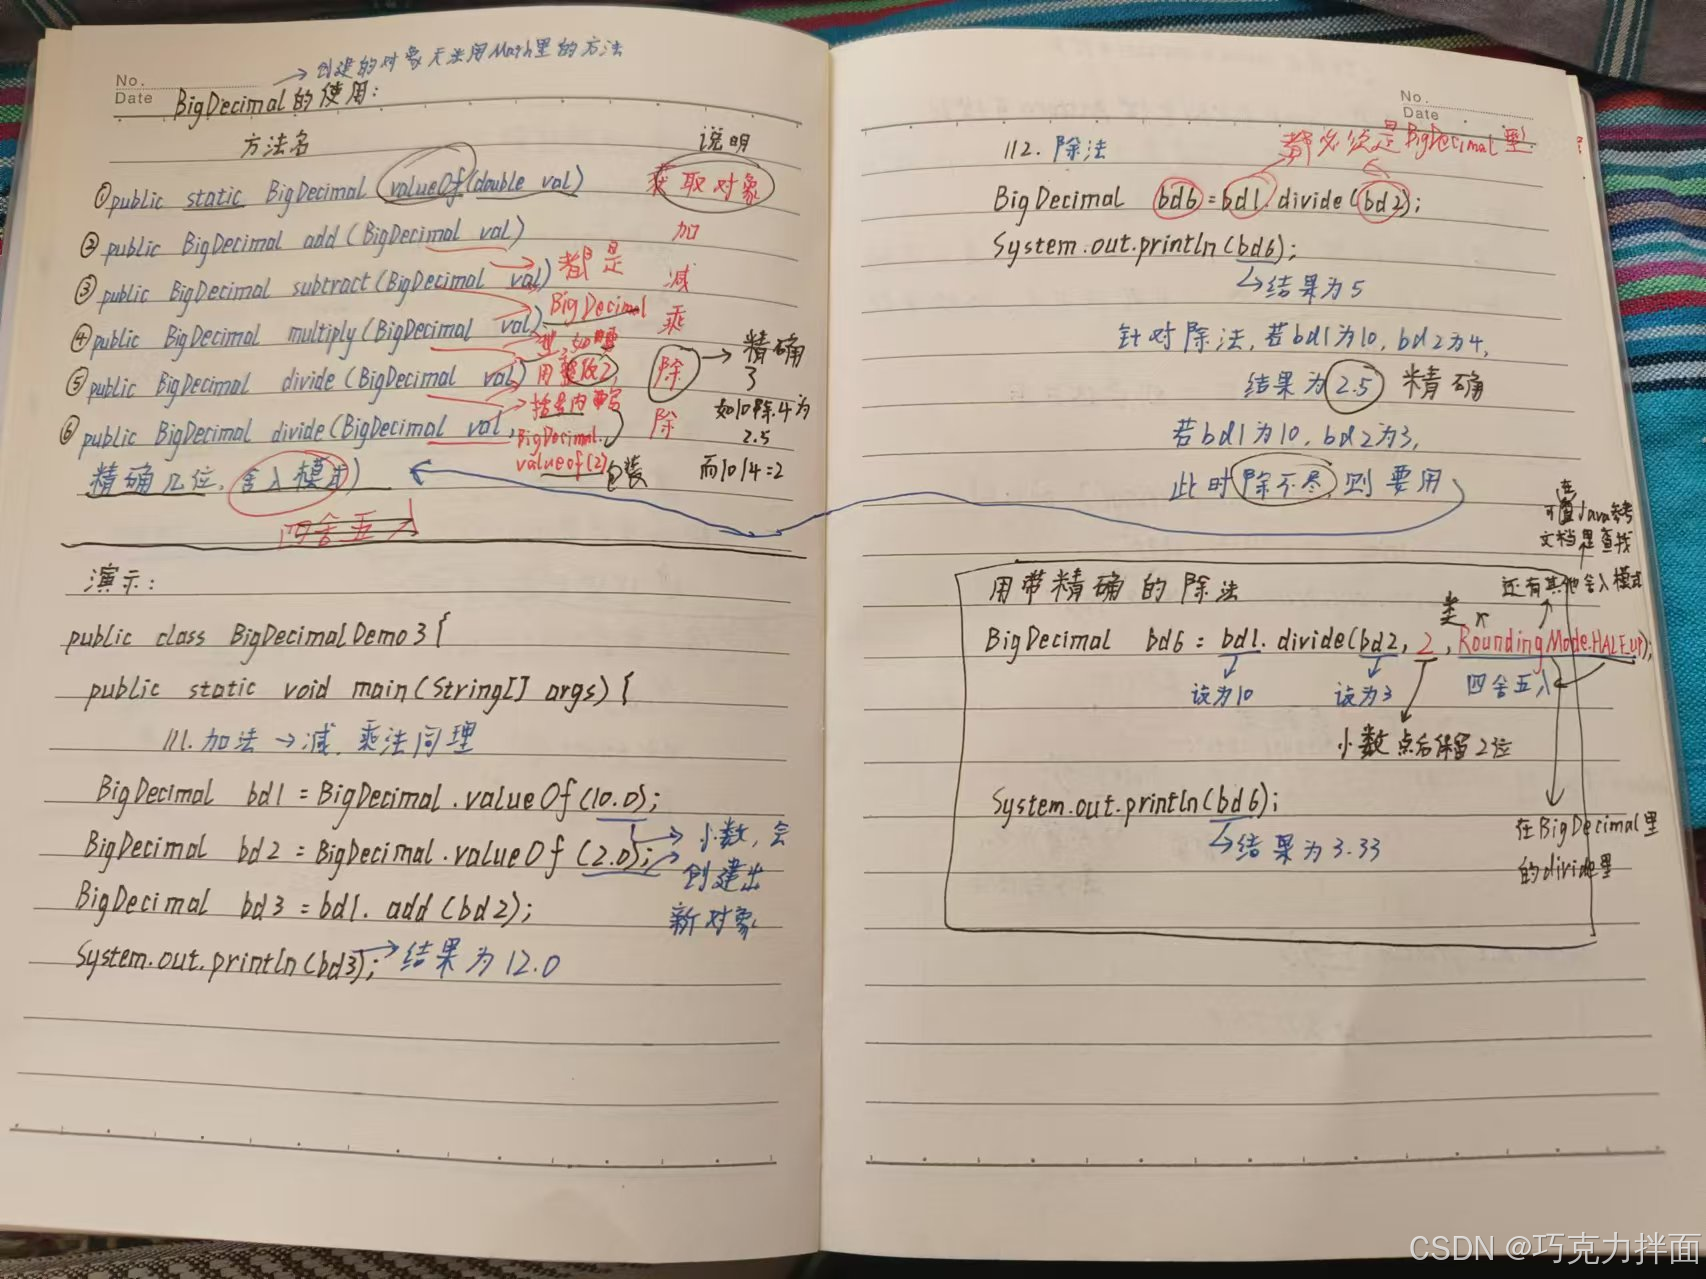 No.
Date
→创建的对象无法用Math里的方法
BigDecimal的使用:
方法名 说明
①public static BigDecimal valueOf(double val) 获取对象
②public BigDecimal add(BigDecimal val) 加
③public BigDecimal subtract(BigDecimal val) 减
④public BigDecimal multiply(BigDecimal val) 乘
⑤public BigDecimal divide(BigDecimal val) 除
⑥public BigDecimal divide(BigDecimal val, 除
精确几位,舍入模式)
四舍五入
都是
BigDecimal
型,如
用整数2,
括号内写
BigDecimal.
valueOf(2)
包装
→精确
了
如10除4为
2.5
而10/4=2
演示:
public class BigDecimalDemo3{
public static void main(String[] args){
111.加法→减、乘法同理
BigDecimal bd1=BigDecimal.valueOf(10.0);
BigDecimal bd2=BigDecimal.valueOf(2.0);
→小数,会
创建出
新对象
BigDecimal bd3=bd1.add(bd2);
System.out.println(bd3);→结果为12.0
No.
Date
112.除法
都必须是BigDecimal型
BigDecimal bd6=bd1.divide(bd2);
System.out.println(bd6);
↳结果为5
针对除法,若bd1为10,bd2为4,
结果为2.5 精确
若bd1为10,bd2为3,
此时除不尽,则要用
在
可查Java参考
文档里查找
还有其他舍入模式
用带精确的除法
类
BigDecimal bd6=bd1.divide(bd2,2,RoundingMode.HALF_UP);
设为10 设为3 四舍五入
小数点后保留2位
System.out.println(bd6);
↳结果为3.33
在BigDecimal里
的divide里
CSDN @巧克力拌面